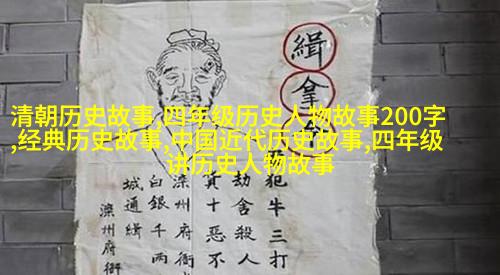 清朝历史故事,四年级历史人物故事200字
,经典历史故事,中国近代历史故事,四年级
讲历史人物故事
緝拿
犯牛三打
劫舍殺人
十惡不
滦州府衙
白銀千兩
城通緝
滦州府衙